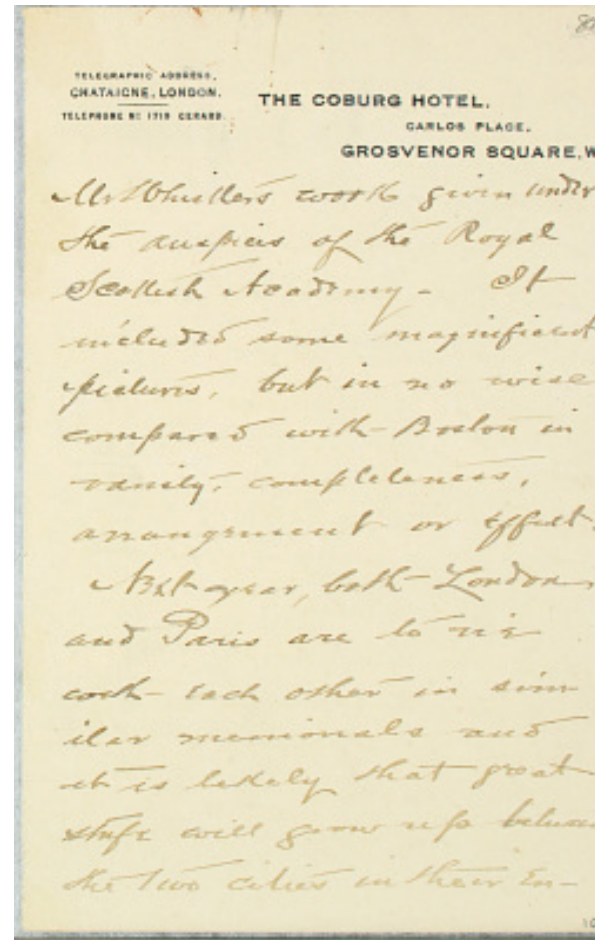 TELEGRAPHIC ADDRESS,
CHATAIGNE, LONDON.
TELEPHONE Nº 1719 GERARD.
THE COBURG HOTEL,
CARLOS PLACE,
GROSVENOR SQUARE, W
Mr Whistler's work given under
the auspices of the Royal
Scottish Academy. It
included some magnificent
pictures, but in no wise
compared with Boston in
variety, completeness,
arrangement or effect.
Next year, both London
and Paris are to
each other in sim
ilar memorials and
it is likely that great
strife will grow up between
the two cities in their en-